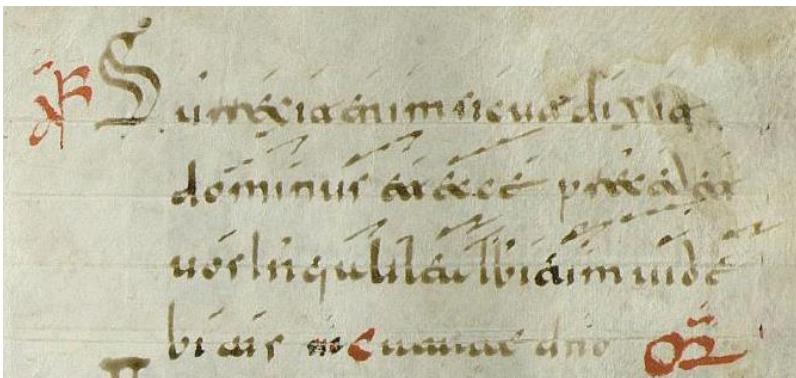 Surrexit enim sicut dixit
dominus et ecce precedet
vos in galileam ibi eum vide
bitis